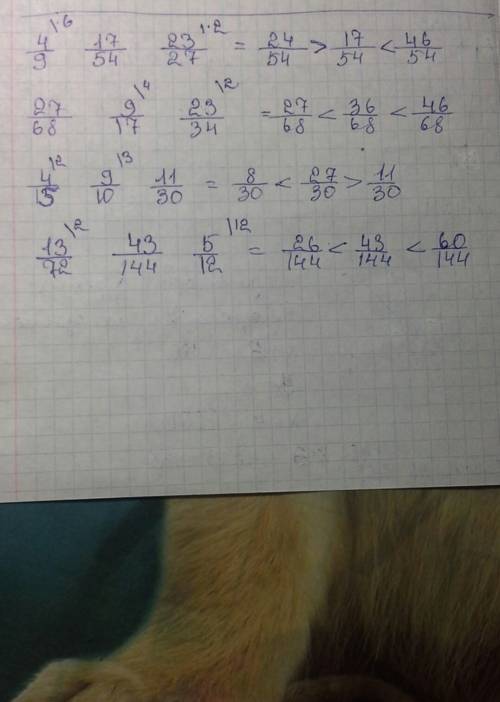 4/9 |·6 17/54 23/27 |·2 = 24/54 > 17/54 < 46/54
27/68 9/17 \4 23/34 \2 = 27/68 < 36/68 < 46/68
4/15 \2 9/10 \3 11/30 = 8/30 < 27/30 > 11/30
13/72 \2 43/144 5/12 \12 = 26/144 < 43/144 < 60/144